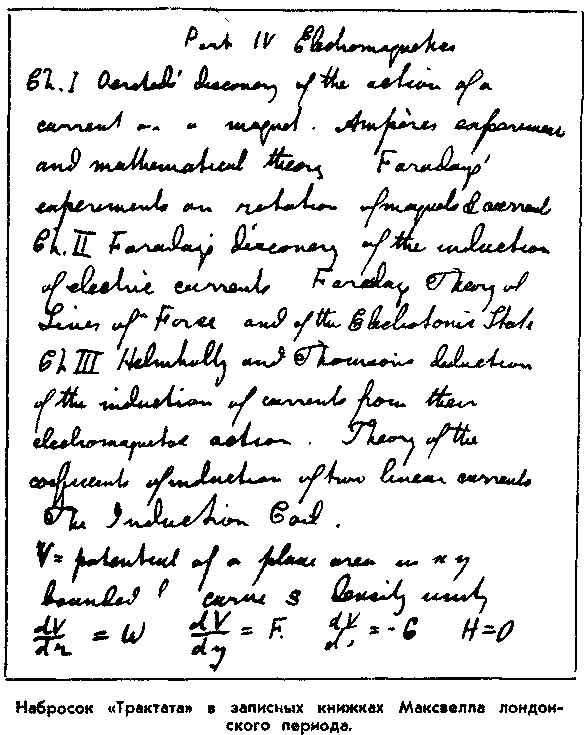 Part IV Electromagnetics
Ch. I Oersteds' discovery of the action of a
current on a magnet. Ampères experiment
and mathematical theory Faradays'
experiments on rotation of magnets & current
Ch. II Faraday's discovery of the induction
of electric currents Faraday Theory of
Lines of Force and of the Electrotonic State
Ch III Helmholtz and Thomson's deduction
of the induction of currents from their
electromagnetic action. Theory of the
coefficients of induction of two linear currents
The Induction Coil.
V = potential of a plane area in xy
bounded curve S Density unity
dV/dz = W dV/dy = F = -G H=0
Набросок «Трактата» в записных книжках Максвелла лондон-
ского периода.